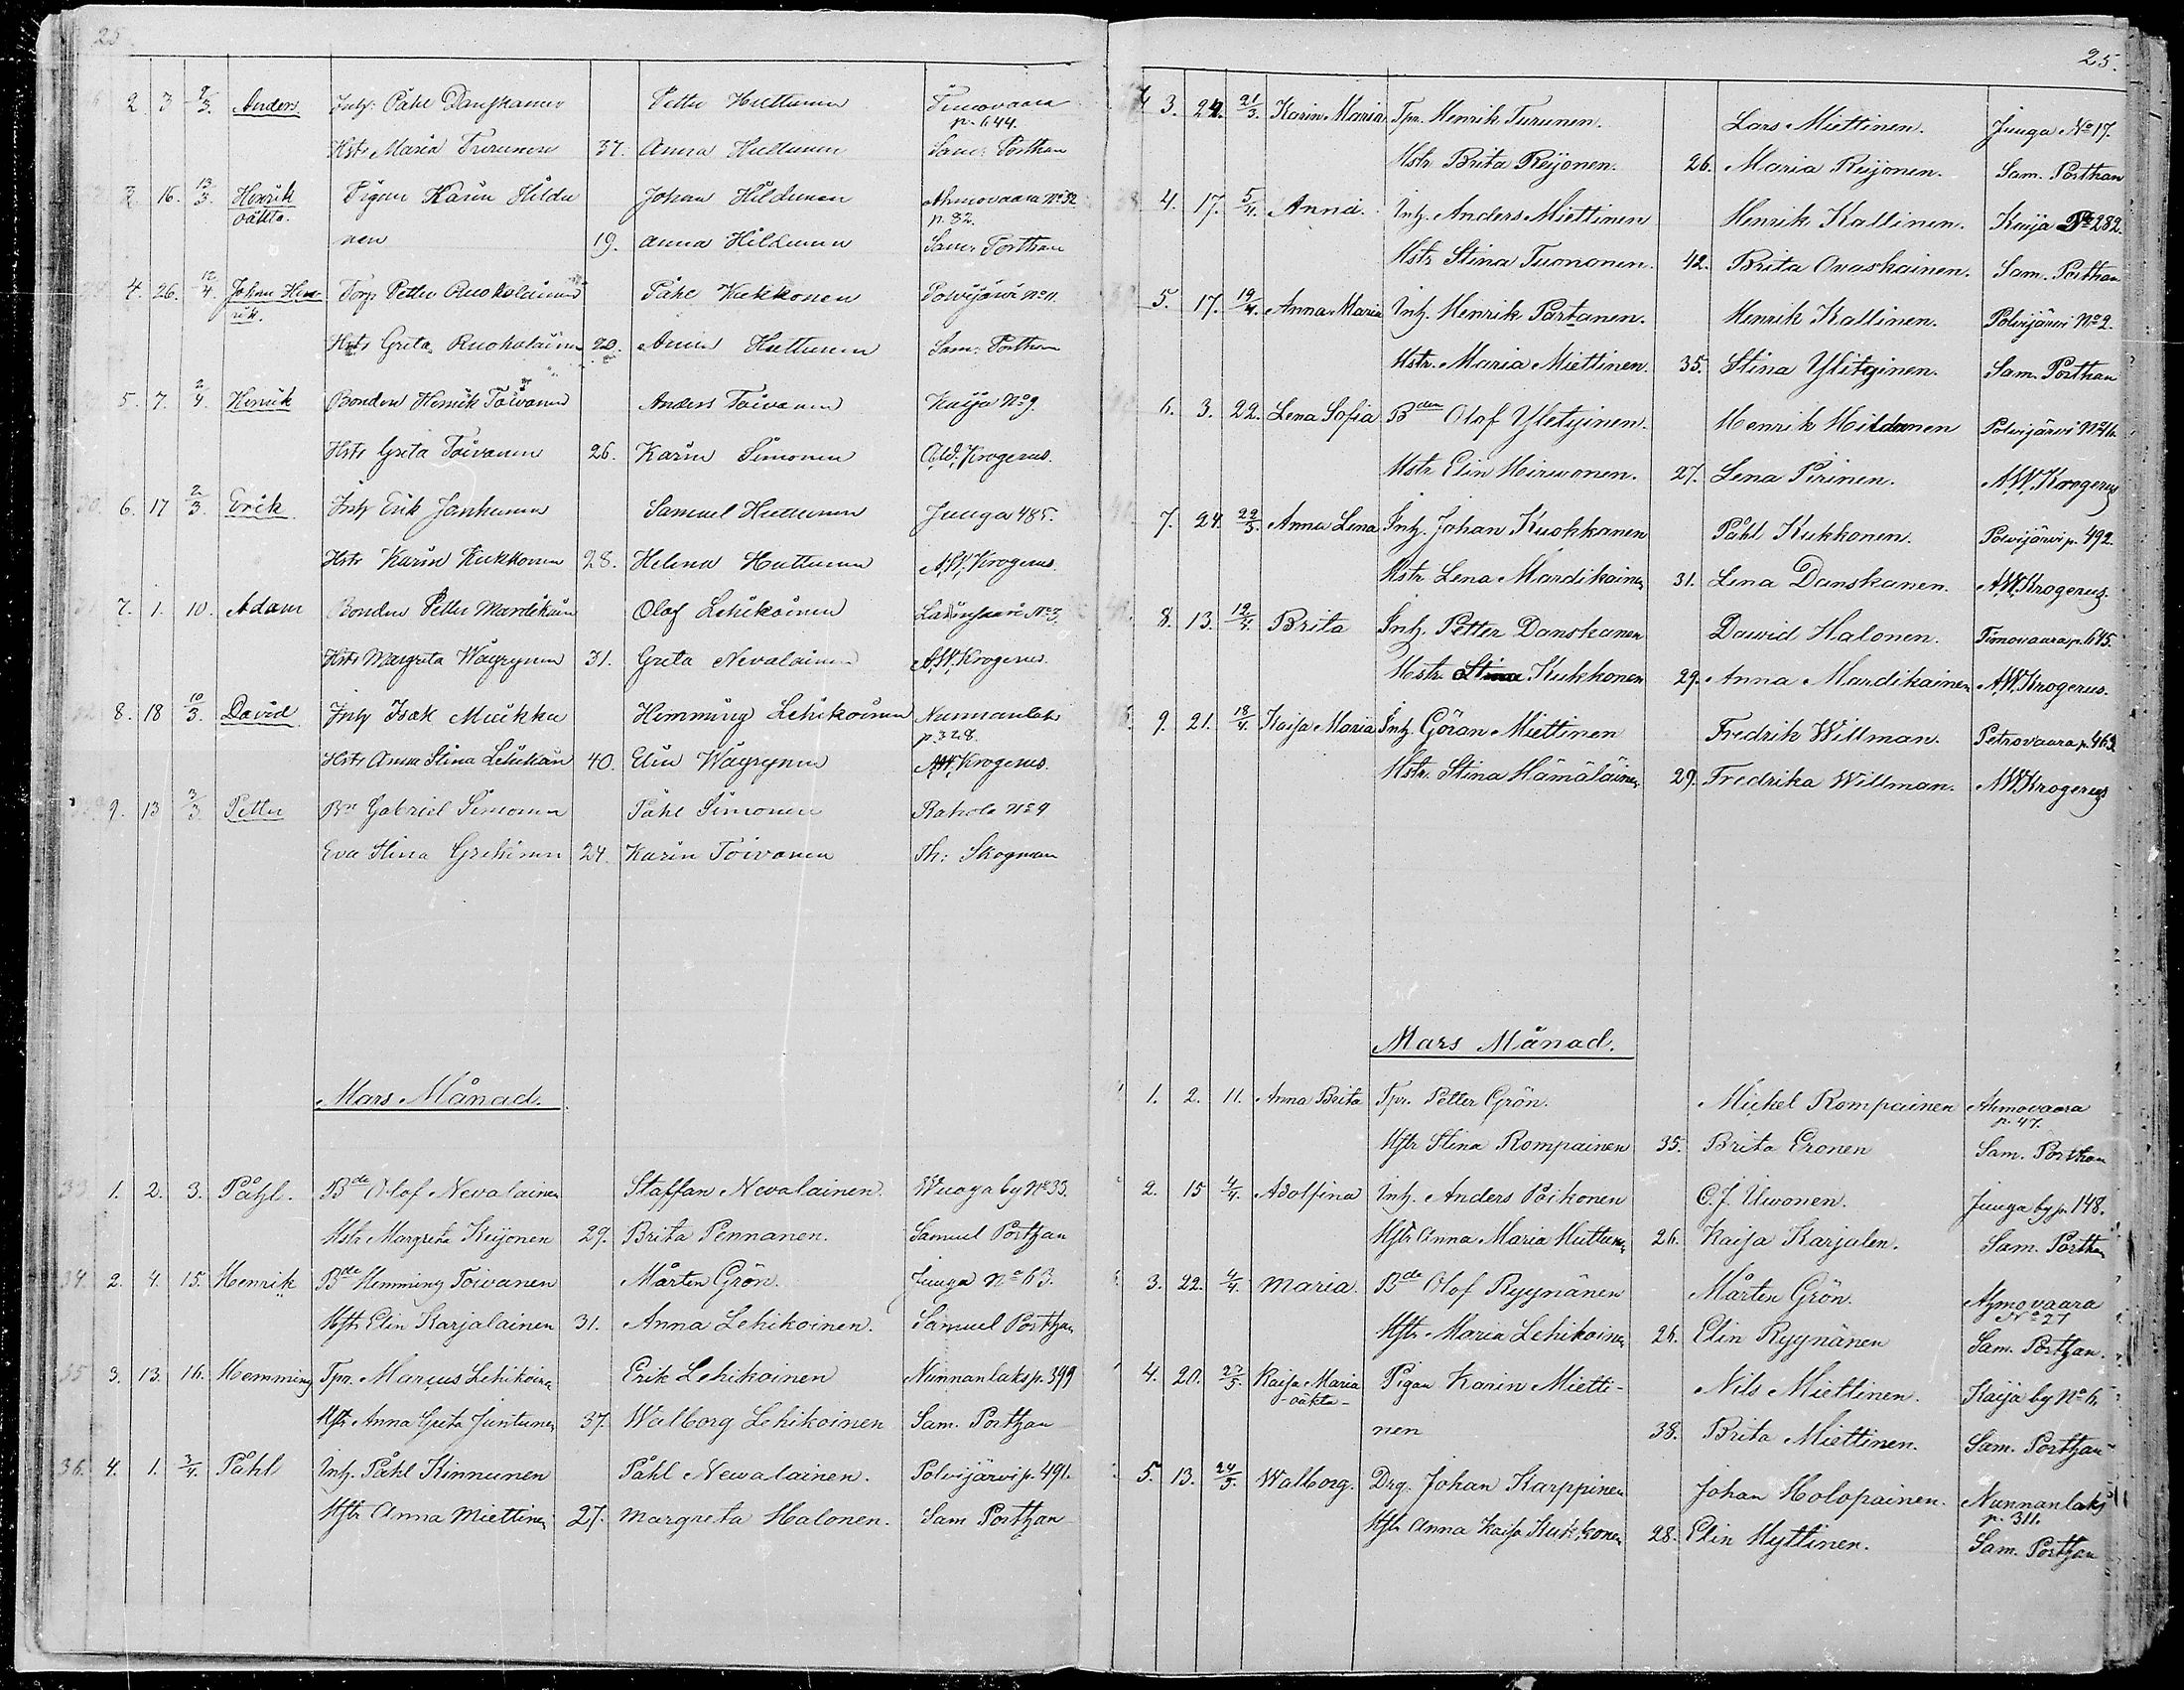 25.
2. 3 9/3. Anders Inh: Påhl Danskanen Petter Huttunen Timovaara
p. 644.
Hstr Maria Turunen 37. Anna Huttunen Sam: Porthan
3. 16. 13/3. Henrik Pigan Karin Hildu Johan Hildunen Ahmovaara No 32
oäkta. p. 82.
nen 19. Anna Hildunen Sam: Porthan
4. 26. 12/4. Johan Hen- Torp Petter Ruokolainen Påhl Kukkonen Polvijärvi No 11.
rik.
Hstr Greta Ruokolainen 20. Anna Huttunen Sam: Porthan
5. 7. 2/4. Henrik Bonden Henrik Toivanen Anders Toivanen Kaija No 9.
Hstr Greta Toivanen 26. Karin Simonen Krogerus.
30. 6. 17 2/3. Erik Inh Erik Janhunen Samuel Huttunen Juuga 485.
Hstr Karin Kukkonen 28. Helena Huttunen A.W. Krogerus.
31. 7. 1. 10. Adam Bonden Petter Mardikain Olof Lehikoinen No 3.
Hstr Margreta Wäyrynen 31. Greta Nevalainen A.W. Krogerus.
32. 8. 18 10/3. David Inh Isak Muikku Hemming Lehikoinen Nunnanlaks
p. 328.
Hstr Anna Stina Lehikoin 40. Elin Wäyrynen A.W. Krogerus.
9. 13 3/3. Petter Bn Gabriel Simonen Påhl Simonen Rahola No 4
Eva Stina Grekinen 24. Karin Toivanen Th: Skogman
Mars Månad.
33 1. 2. 3. Påhl. Bde Olof Nevalainen Staffan Nevalainen. Wuoga by No 33.
Hstr Margreta Reijonen 29. Brita Pennanen. Samuel Porthan
34 2. 4. 15. Henrik Bde Hemming Toivanen Mårten Grön. Juuga No 63.
Hstr Elin Karjalainen 31. Anna Lehikoinen. Samuel Porthan
35 3. 13. 16. Hemming Tpr. Marcus Lehikoine Erik Lehikoinen Nunnanlaks p. 399
Hstr Anna Greta Juntunen 37. Walborg Lehikoinen Sam. Porthan
36. 4. 1. 3/4. Påhl Inh. Påhl Kinnunen Påhl Newalainen. Polvijärvi p. 491.
Hstr Anna Miettinen 27. Margreta Halonen. Sam Porthan
25.
3. 24. 21/3. Karin Maria Tpr. Henrik Turunen. Lars Miettinen. Juuga No 17.
Hstr Brita Reijonen. 26. Maria Reijonen. Sam. Porthan
4. 17. 5/4. Anna. Inh. Anders Miettinen Henrik Kallinen. Kaija 282.
Hstr Stina Tuononen. 42. Brita Ovaskainen. Sam. Porthan
5. 17. 19/4. Anna Maria Inh. Henrik Partanen. Henrik Kallinen. Polvijärvi No 2.
Hstr. Maria Miettinen. 35. Stina Ylitginen. Sam. Porthan
6. 3. 22. Lena Sofia Bden Olof Yletyinen. Henrik Hildunen Polvijärvi No 46.
Hstr. Elin Hirwonen. 27. Lena Pirinen. A.W. Krogerus
7. 24. 22/3. Anna Lena Inh. Johan Kuokkanen Påhl Kukkonen. Polvijärvi p. 492.
Hstr. Lena Mardikainen 31. Lena Danskanen. A.W. Krogerus.
8. 13. 12/4. Brita Inh. Petter Danskanen Dawid Halonen. Timovaara p. 645.
Hstr. Stina Kukkonen 29. Anna Mardikainen A.W. Krogerus.
9. 21. 18/4. Kaisa Maria Inh. Göran Miettinen Fredrik Willman. Petrovaara p. 463
Hstr. Stina Hämäläinen 29. Fredrika Willman. A.W. Krogerus
Mars Månad.
1. 2. 11. Anna Brita Tpr. Petter Grön. Michel Rompainen Ahmovaara
p. 47.
Hstr Stina Rompainen 35. Brita Eronen Sam. Porthan
2. 15 4/4. Adolfina Inh. Anders Päikonen C.J. Uwonen. Juuga by p. 148.
Hstr Anna Maria Huttunen 26. Kaija Karjalen. Sam. Porthan
3. 22. 4/4. Maria. Bde Olof Ryynänen Mårten Grön. Ahmovaara
No 27
Hstr Maria Lehikoinen 26. Elin Ryynänen Sam. Porthan.
4. 20. 27/5. Kaisa Maria Pigan Karin Mietti- Nils Miettinen. Kaija by No 6.
-oäkta-
nen 38. Brita Miettinen. Sam. Porthan
5. 13. 24/5. Walborg. Drg. Johan Karppinen Johan Holopainen. Nunnanlaks
p. 311.
Hstr Anna Kaisa Kukkonen 28. Elin Hyttinen. Sam. Porthan